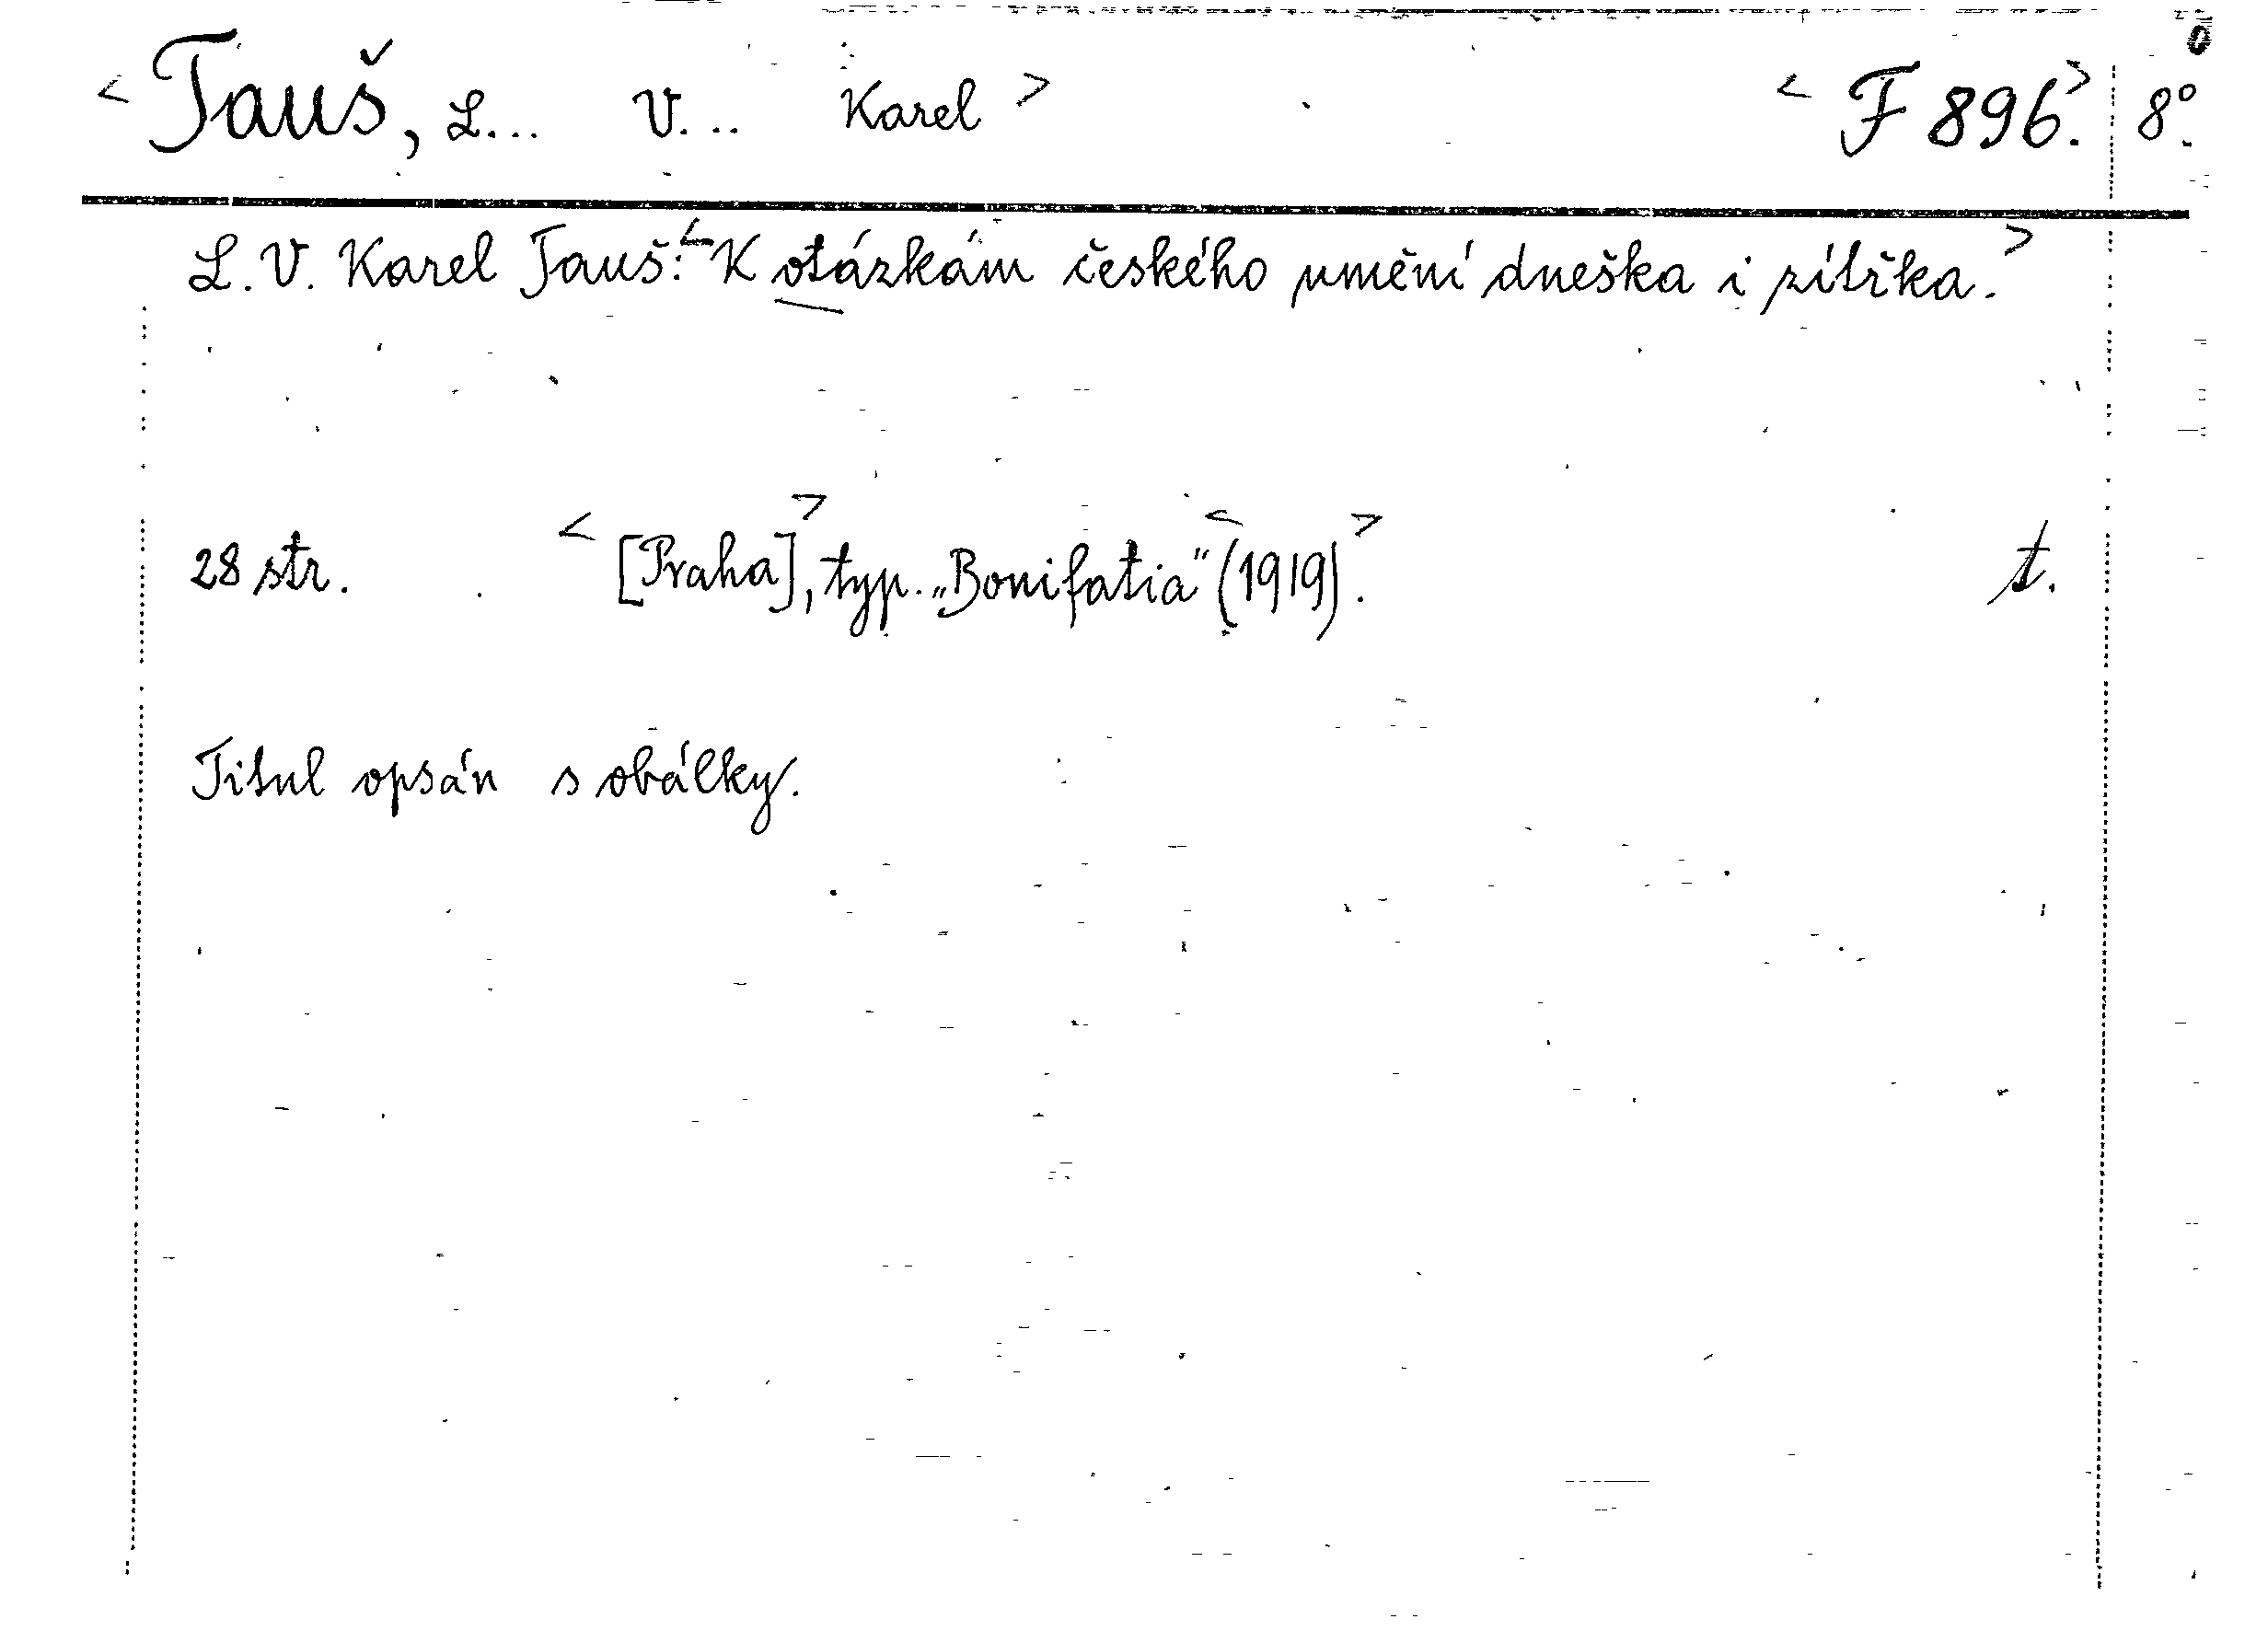 < Tauš, L... V... Karel > < F 896. > 8°.
L. V. Karel Tauš: < K otázkám českého umění dneška i zítřka. >
28 str. < [Praha] >, typ. „Bonifatia" < (1919). > t.
Titul opsán s obálky.